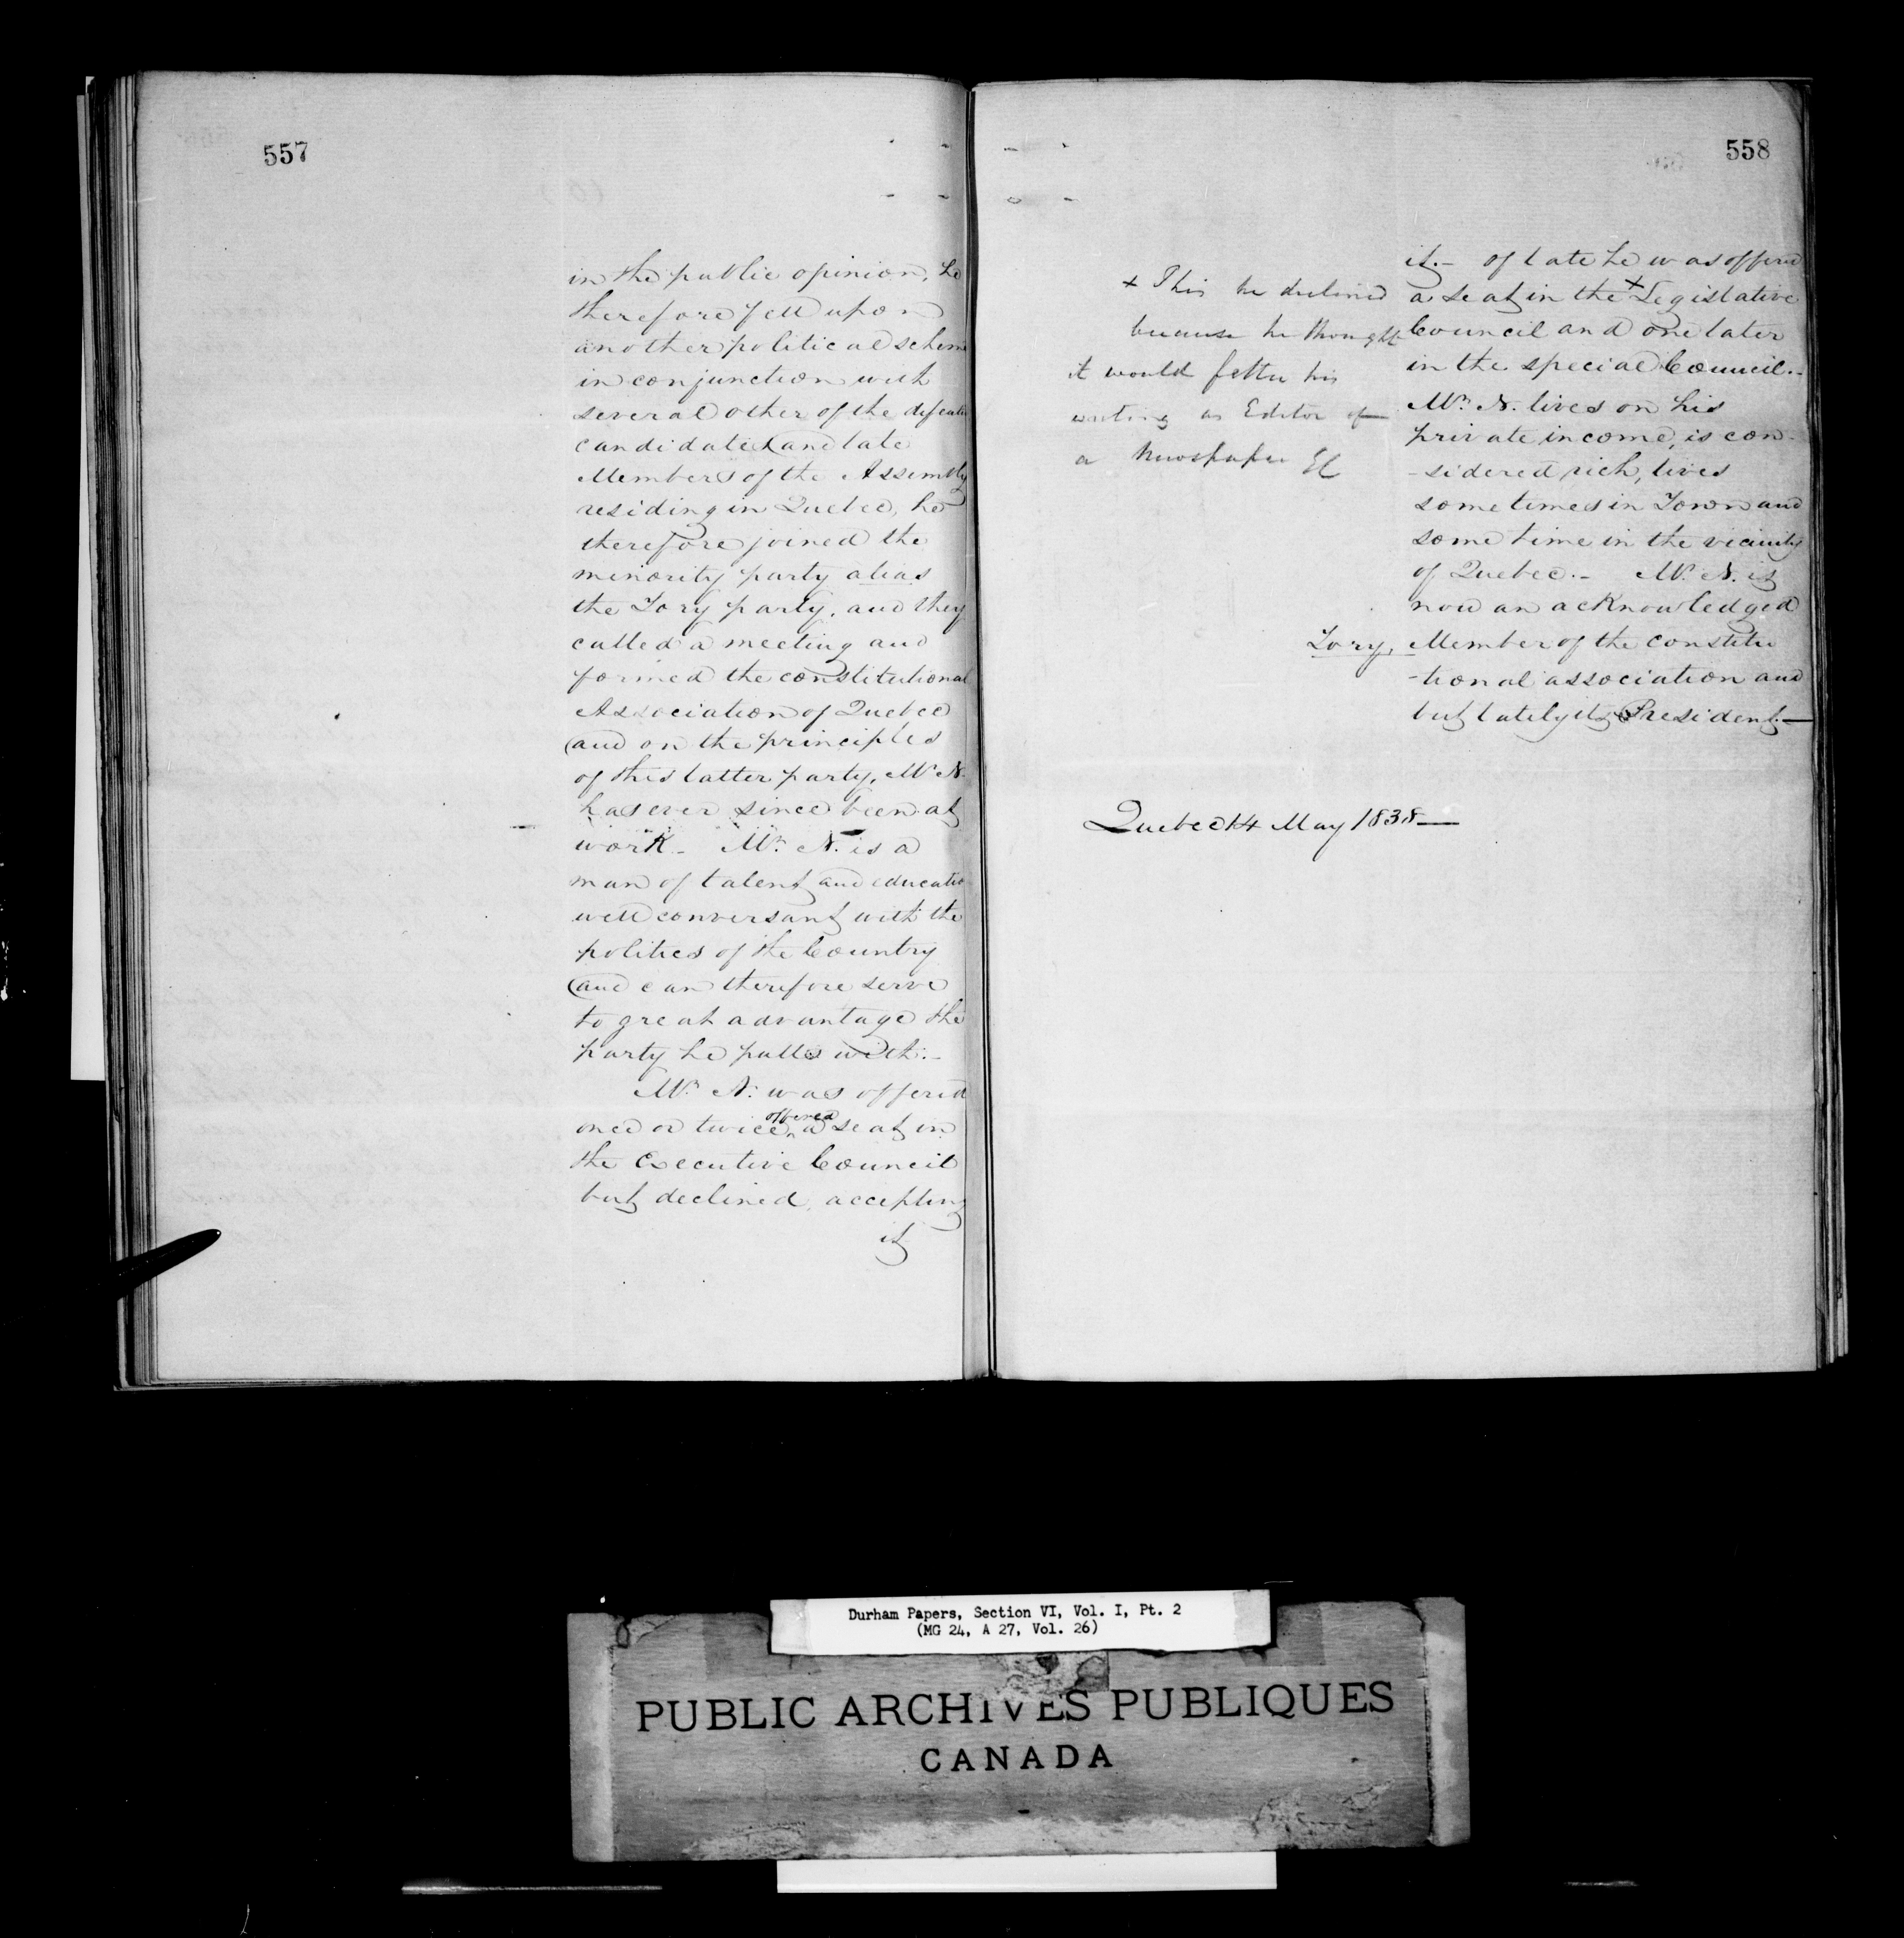 557
in the public opinion, he
therefore fell upon
another political scheme
in conjunction with
several other of the defeated
candidates and late
Members of the Assembly
residing in Quebec, he
therefore joined the
minority party alias
the Tory party, and they
called a meeting and
formed the constitutional
Association of Quebec
and on the principles
of this latter party, Mr N.
has ever since been at
work _ Mr. N. is a
man of talent and education
well conversant with the
politics of the Country
and can therefore serve
to great advantage the
party he pulls with._
Mr. N. was offered
once or twice offered a seat in
the Executive Council
but declined accepting
it
558
it._ of late he was offered
a seat in the + Legislative
Council and one later
in the special Council._
Mr. N. lives on his
private income, is con-
-sidered rich, lives
sometimes in Town and
some time in the vicinity
of Quebec._ Mr. N. is
now an acknowledged
Tory, Member of the constitu
-tional association and
but lately its President._
+ This he declined
because he thought
it would fetter his
writing as Editor of
a Newspaper
Quebec 14 May 1838_
Durham Papers, Section VI, Vol. I, Pt. 2
(MG 24, A 27, Vol. 26)
PUBLIC ARCHIVES PUBLIQUES
CANADA